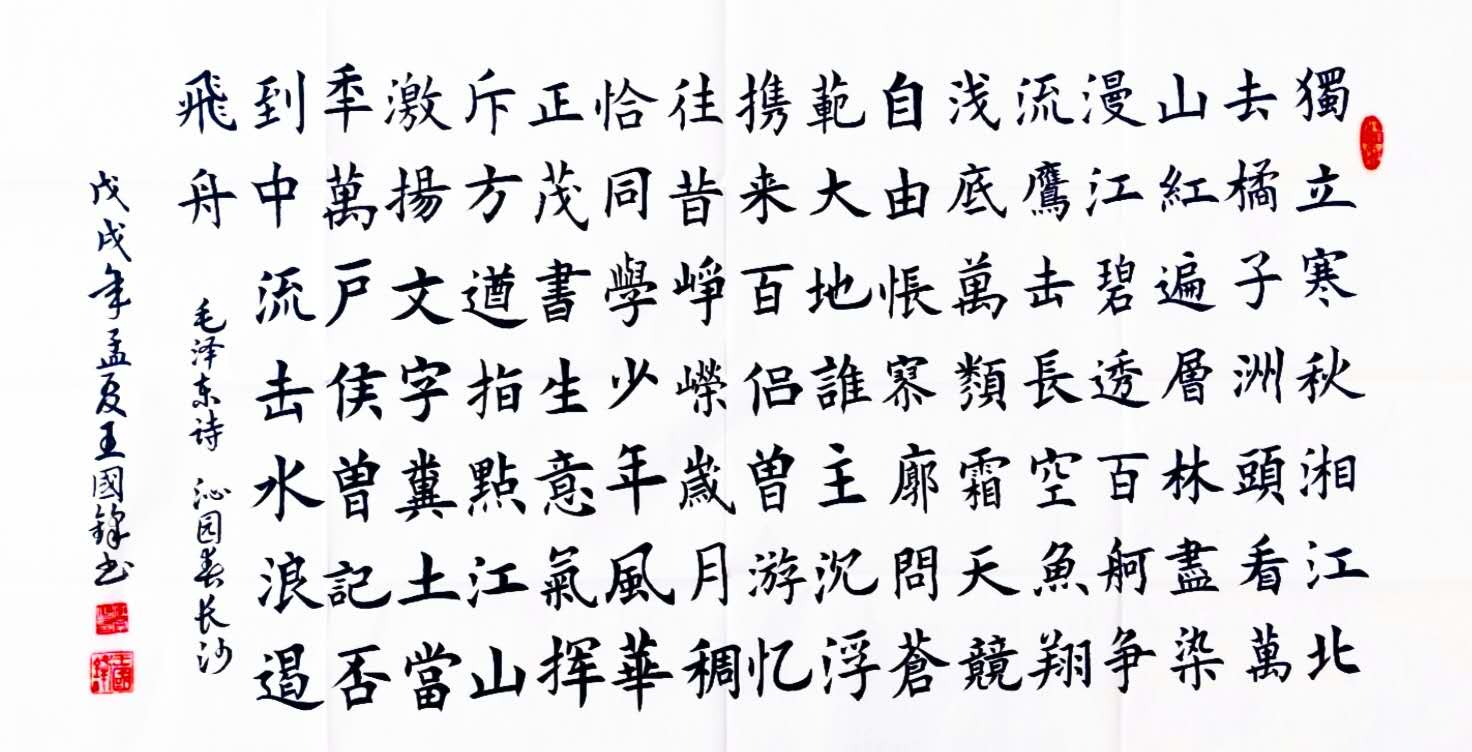 獨立寒秋湘江北
去橘子洲頭看萬
山紅遍層林盡染
漫江碧透百舸争
流鷹击長空魚翔
浅底萬類霜天競
自由悵寥廓問蒼
範大地誰主沉浮
携来百侣曾游忆
往昔崢嶸歲月稠
恰同學少年風華
正茂書生意氣挥
斥方遒指點江山
激揚文字糞土當
秊萬户侯曾記否
到中流击水浪遏
飛舟
毛泽东诗 沁园春长沙
戊戌年孟夏王國鋒书